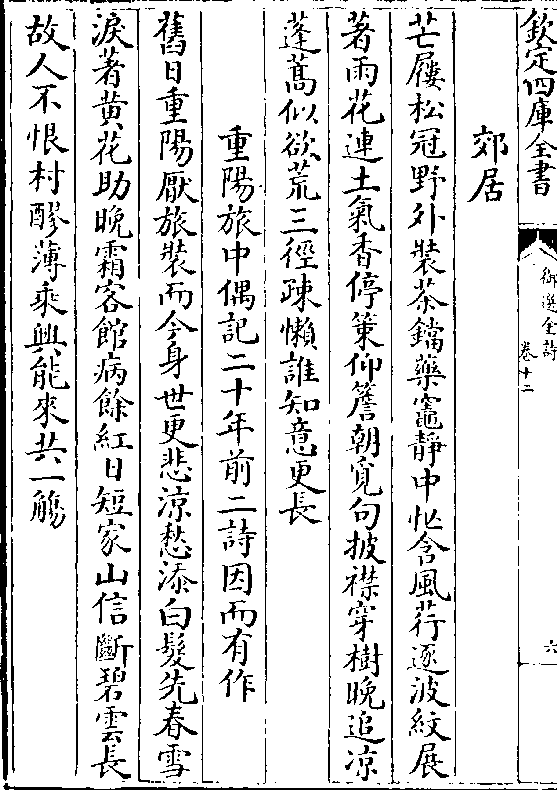 欽定四庫全書
御選金詩
卷十二
六
郊居
芒屨松冠野外裝茶鐺藥竈靜中忙含風荇逐波紋展
著雨花連土氣香停筆仰簷朝覓句披襟穿樹晚追凉
蓬蒿似欲荒三徑疎懶誰知意更長
重陽旅中偶記二十年前二詩因而有作
舊日重陽厭旅裝而今身世更悲涼愁添白髮先春雪
淚著黃花助晚霜客館病餘紅日短家山信斷碧雲長
故人不恨村醪薄乘興能來共一觴